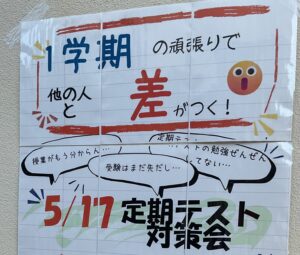 1学期の頑張りで
他の人と差がつく!
授業がもう分からん…
受験はまだ先だし…
定期テ
トの勉強ぜんぜん
してない…
5/17 定期テスト
対策会